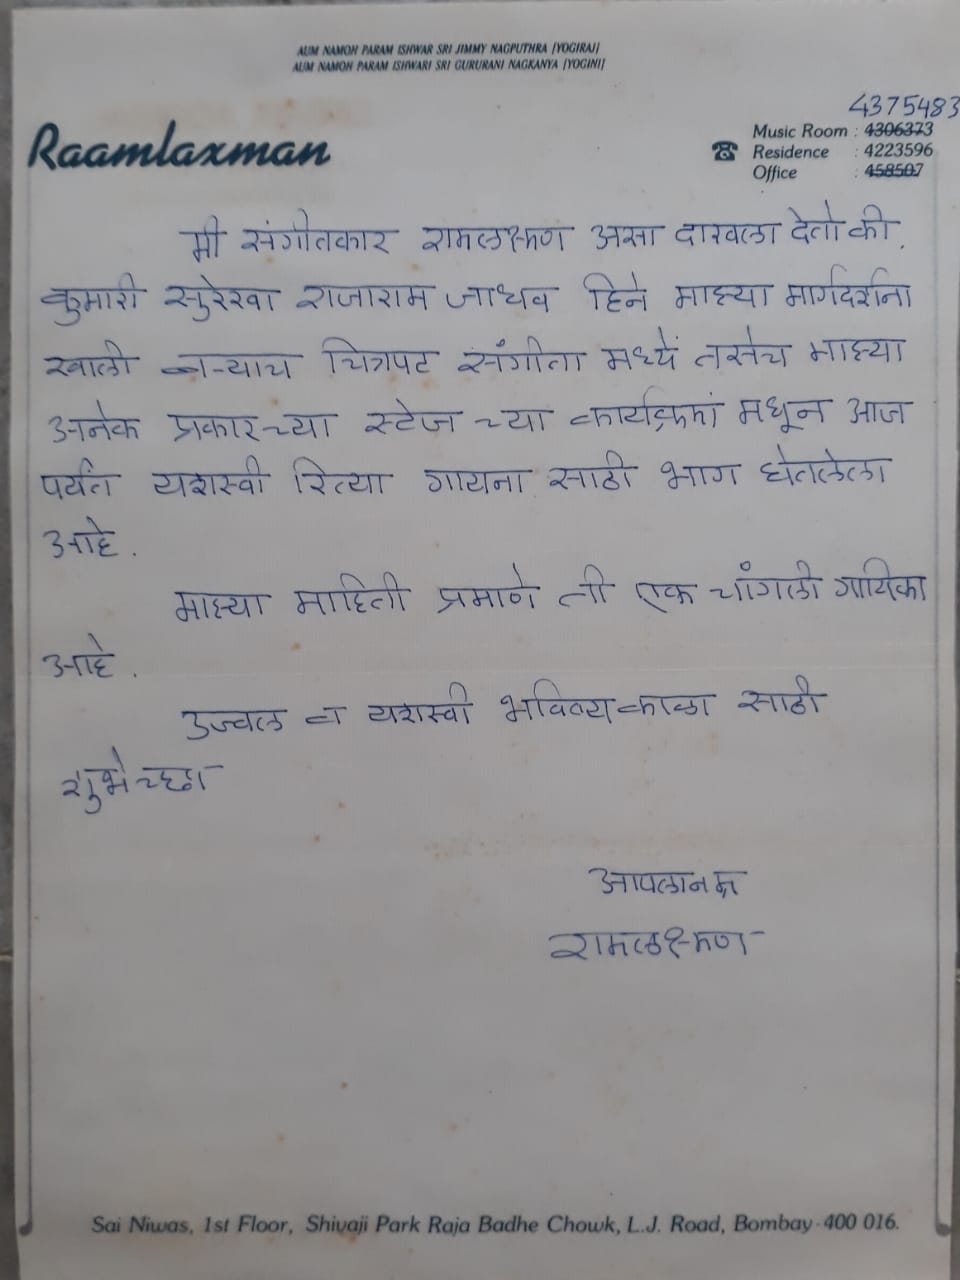 AUM NAMOH PARAM ISHWAR SRI JIMMY NAGPUTHRA [YOGIRAJ]
AUM NAMOH PARAM ISHWARI SRI GURURANI NAGKANYA [YOGINI]
4375483
Raamlaxman
Music Room : 4306373
☎ Residence : 4223596
Office : 458507
मी संगीतकार रामलक्ष्मण असा दाखला देतो की,
कुमारी सुरेखा राजाराम जाधव हिने माझ्या मार्गदर्शना
खाली बऱ्याच चित्रपट संगीता मध्ये तसेच माझ्या
अनेक प्रकारच्या स्टेज च्या कार्यक्रमां मधून आज
पर्यंत यशस्वी रित्या गायना साठी भाग घेतलेला
आहे.
माझ्या माहिती प्रमाणे ती एक चांगली गायिका
आहे.
उज्वल व यशस्वी भवितव्यकाळा साठी
शुभेच्छा
आपला नम्र
रामलक्ष्मण
Sai Niwas, 1st Floor, Shivaji Park Raja Badhe Chowk, L.J. Road, Bombay-400 016.